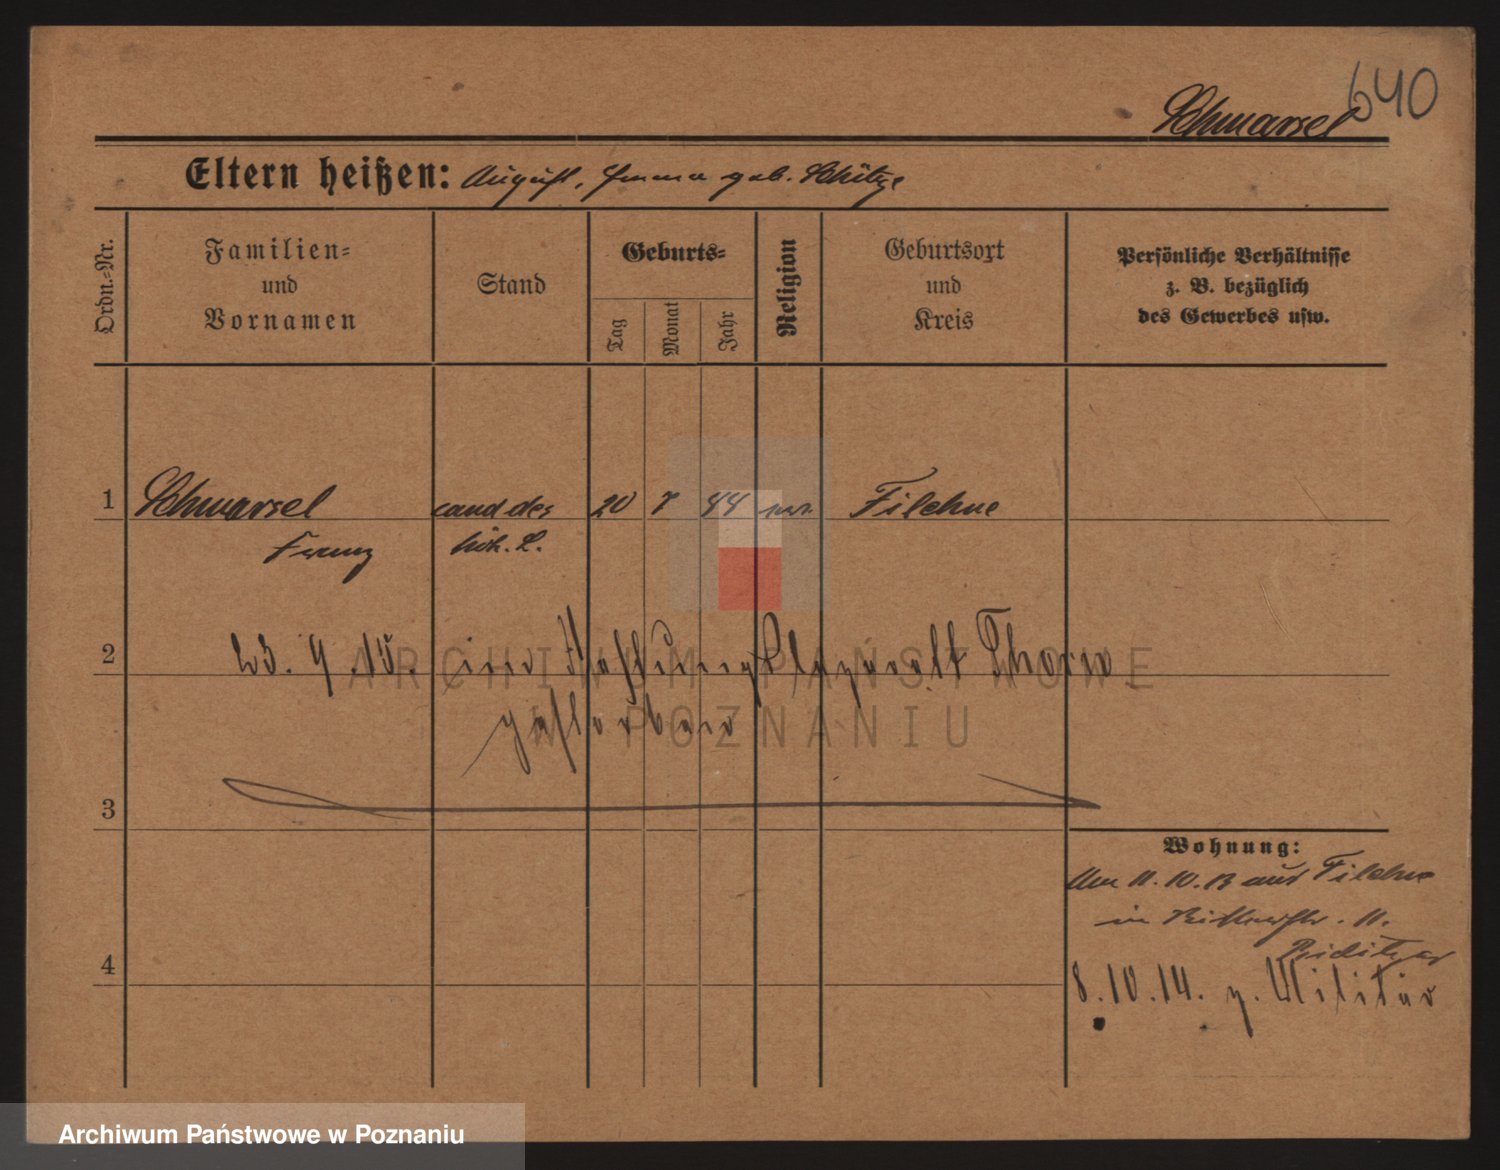 640
Schmarsel
Eltern heißen: August, Emma geb. Schütze
Ordn.-Nr.
Familien- und Vornamen
Stand
Geburts-
Tag
Monat
Jahr
Religion
Geburtsort und Kreis
Persönliche Verhältnisse z. B. bezüglich des Gewerbes usw.
1 Schmarsel cand des 20 7 Filehne
Franz höh. L.
2 23. 9. 15. im Festungslazarett Thorn
gestorben
3
Wohnung:
Am 11.10.13 aus Filehne
in 11.
4
8.10.14. z. Militär
ARCHIWUM PAŃSTWOWE
W POZNANIU
Archiwum Państwowe w Poznaniu